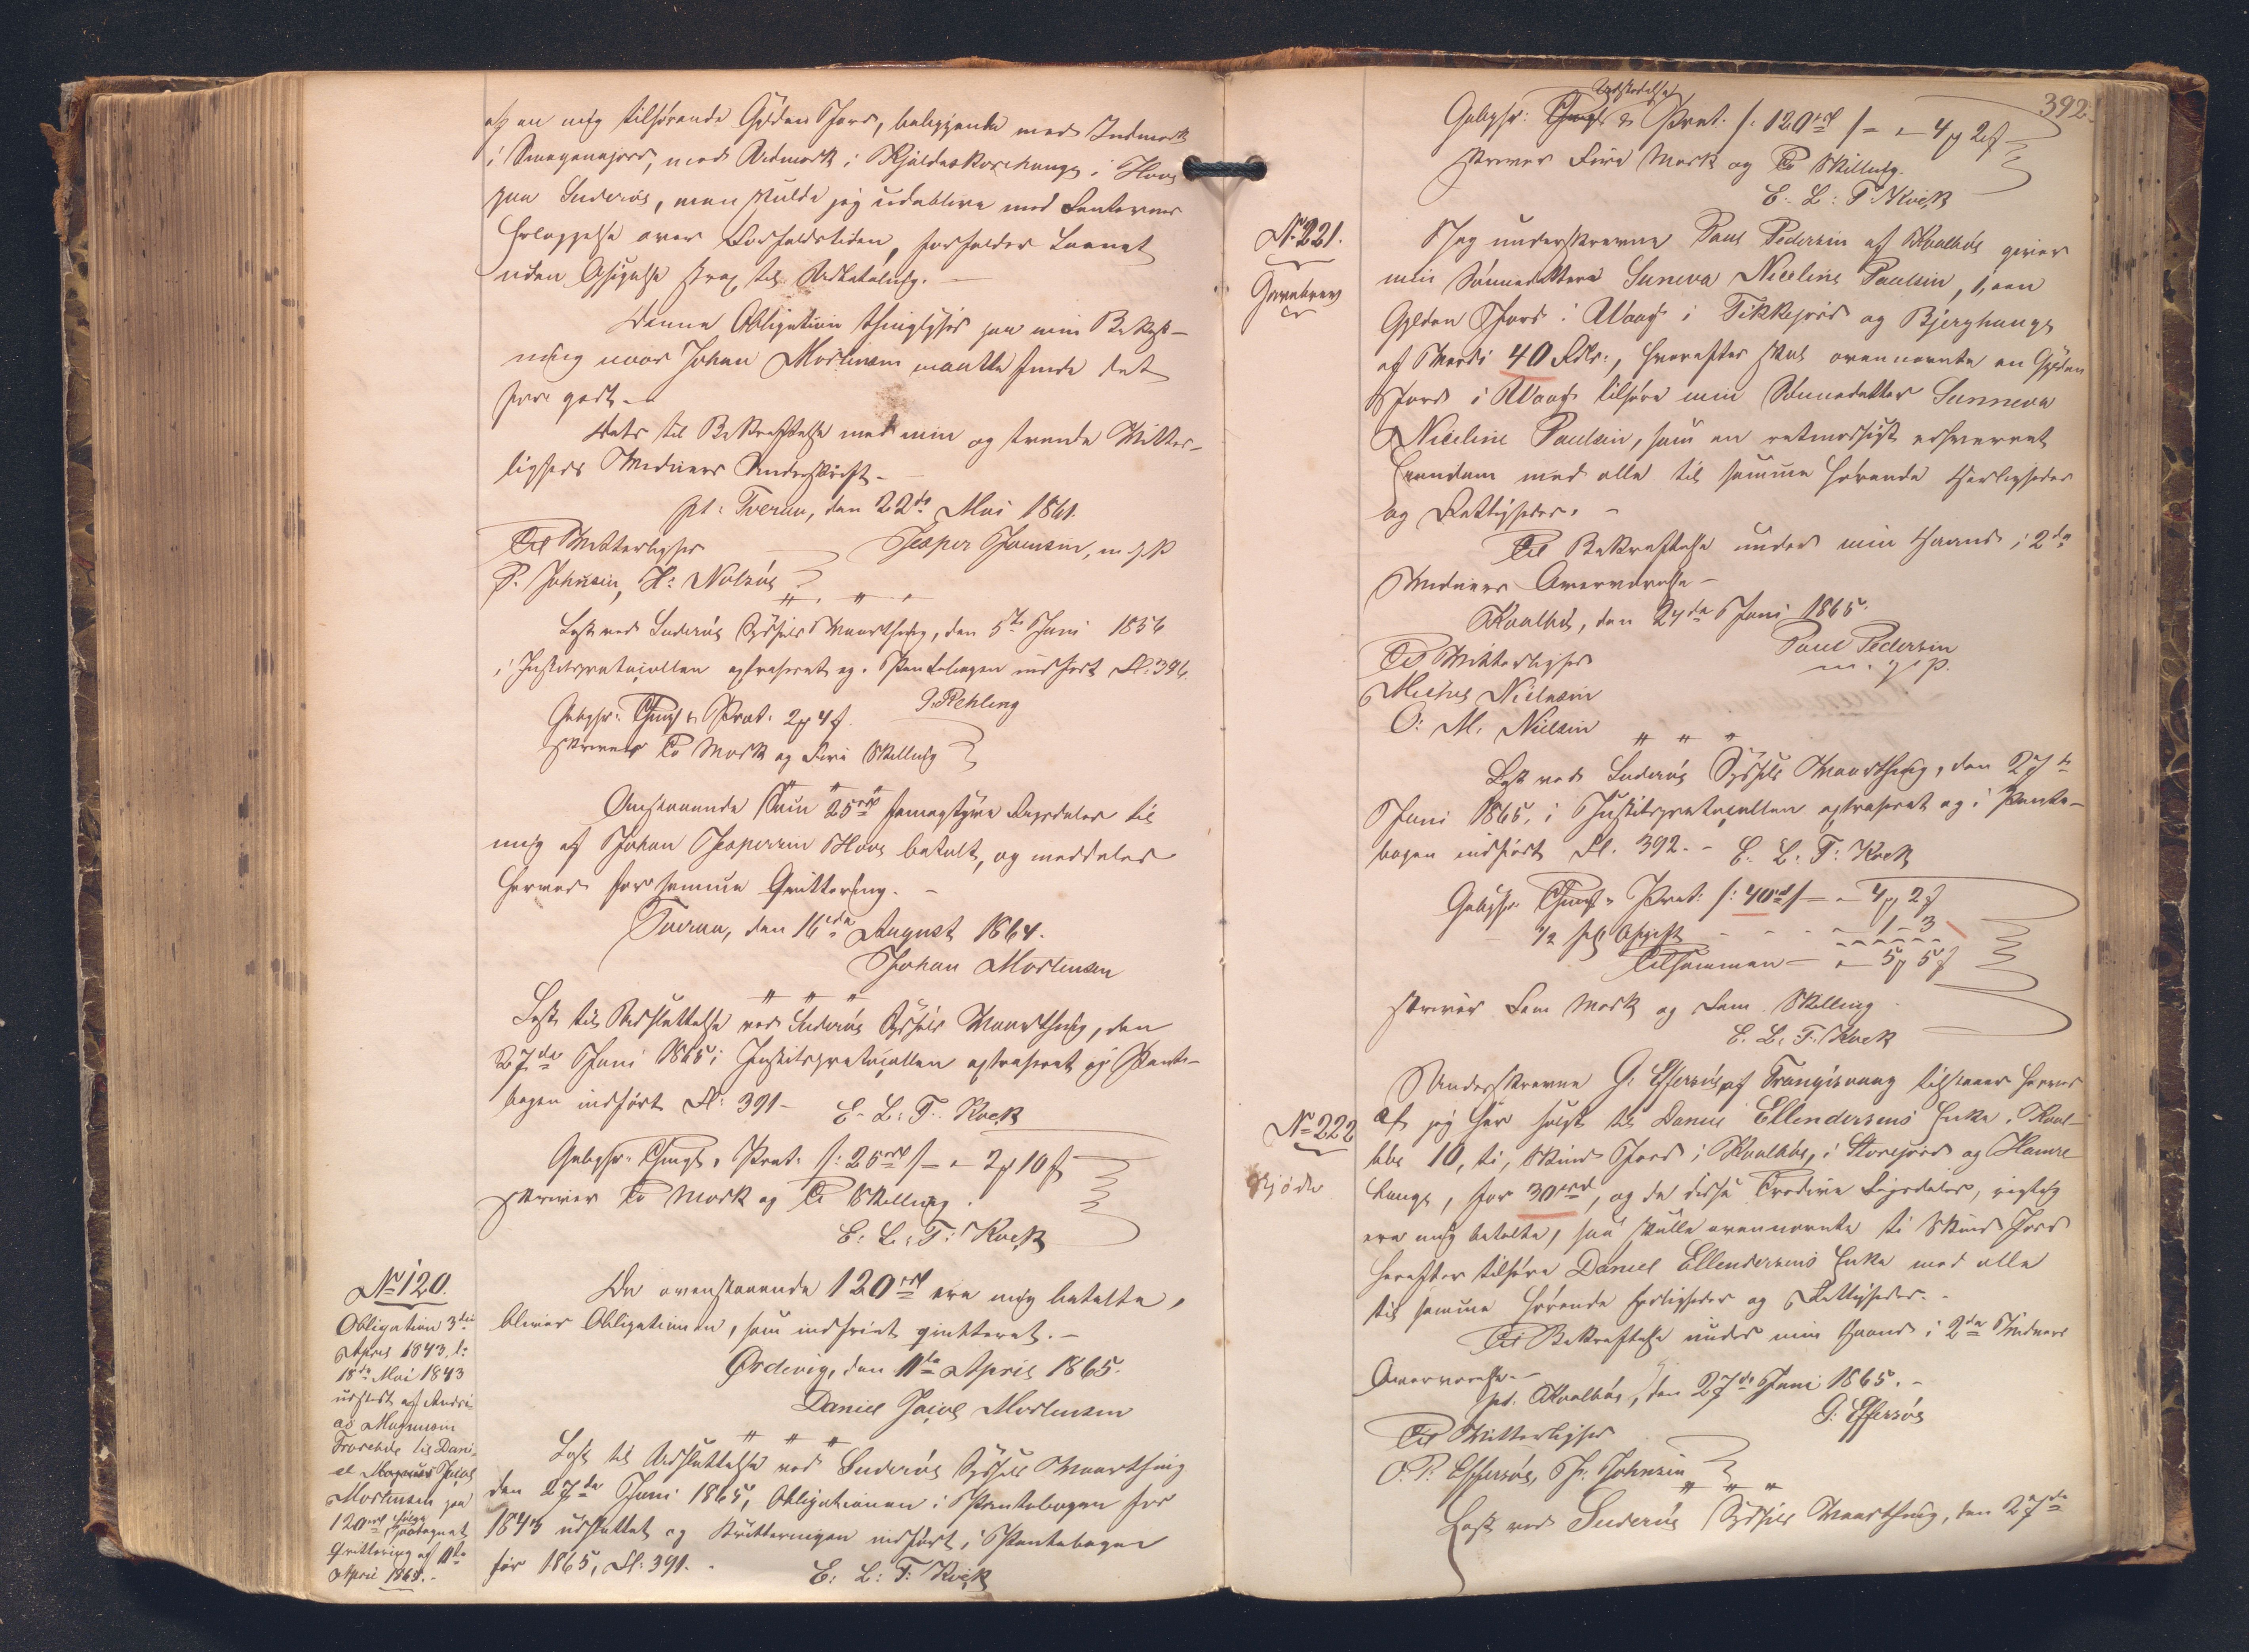 af en mig tilhørende Gylden Jord, beliggende med Indmark
i Smøgenagjord, med Udmark i Kjøldeskorehauge i Hove
paa Suderøe, men skulde jeg udeblive med Renternes
Erlæggelse over Forfaldstiden, forfalder Laanet
uden Opsigelse strax til Udbetaling. —
Denne Obligation thinglyses paa min Bekost-
ning naar Johan Mortensen maatte finde det
for godt. —
Dets til Bekræftelse med min og tvende Vitter-
ligheds Vidners Underskrift. —
pt: Tveraa, den 22de Mai 1861.
Til Vitterlighed
Jesper Joensen, m. f. P
P. Johnsen, H: Nolsøe
Læst ved Suderøe Syssels Vaarthing, den 5te Juni 1856
i Justitsprotocollen extraheret og i Pantebogen indført Fol: 396.
Gebyhr: Thingl. & Prot. 2 ₥ 4 ß. J. Rehling
skriver To Mark og Fire Skilling
Omstaaende Sum 25 rd femogtyve Rigsdaler til
mig af Johan Jespersen Hove betalt, og meddeles
herved for samme Qvittering. —
Tveraa, den 16de August 1864.
Johan Mortensen
Læst til Udslettelse ved Suderøe Syssels Vaarthing, den
27de Juni 1865 i Justitsprotocollen extraheret og i Pante-
bogen indført Fol: 391 — E. L: T. Kock
Gebyhr Thingl. & Prot. /: 25 rd / = 2 ₥ 10 ß
skriver To Mark og Ti Skilling.
E: L: T: Kock
No 120.
Obligation 3die
April 1843, l:
18de Mai 1843
udstedt af Andre-
as Magnusen
Froebøe til Dani-
el Magnus Jacob
Mortensen paa
120 rd ifølge paategnet
Qvittering af 11te
April 1865. —
De ovenstaaende 120 rd ere mig betalte,
bliver Obligationen, som indfriet qvitteret. —
Ordevig, den 11te April 1865.
Daniel Jacob Mortensen
Læst til Udslettelse ved Suderøe Syssels Vaarthing
den 27de Juni 1865, Obligationen i Pantebogen for
1843 udslettet og Kvitteringen indført i Pantebogen
for 1865, Fol: 391. — E: L: T: Kock
392.
Udslettelse
Gebyhr: Thingl & Prot. /: 120 rd / = 4 ₥ 2 ß
skriver Fire Mark og To Skilling.
E. L: T. Kock
No 221.
Gavebrev
Jeg underskrevne Poul Pedersen af Kvalbøe giver
min Sønnedatter Suneva Nicoline Poulsen, 1, een
Gylden Jord i Waag i Tikkejord og Bjerghauge
af Værdi 40 Rdlr:, hvorefter skal ovennævnte en Gylden
Jord i Waag tilhøre min Sønnedatter Sunneva
Nicoline Poulsen, som en retmæssigt erhvervet
Eiendom med alle til samme hørende Herligheder
og Rettigheder. —
Til Bekræftelse under min Haand i 2de
Vidners Overværelse —
Kvalbø, den 27de Juni 1865.
Poul Pedersen
m. f. P.
Til Vitterlighed
Michel Nielsen
O: M. Nielsen
Læst ved Suderøe Syssels Vaarthing, den 27de
Juni 1865, i Justitsprotocollen extraheret og i Pante-
bogen indført Fol. 392. — E. L: T: Kock
Gebyhr Thingl & Prot: /: 40 rd / — 4 ₥ 2 ß
1/2 pCt Afgift - - - 1 - 3
Tilsammen — 5 ₥ 5 ß
skriver Fem Mark og Fem Skilling
E. L: T. Kock
No 222
Skjøde
Underskrevne G: Effersøe af Trangisvaag tilstaaer herved
at jeg har solgt til Daniel Ellendersens Enke i Kval-
bøe 10, ti, Skind Jord i Kvalbøe, i Storejord og Hamre-
hauge, for 30 rd, og da disse Tredive Rigsdaler, rigtig
ere mig betalte, saa skulle ovennævnte ti Skind Jord
herefter tilhøre Daniel Ellendersens Enke med alle
til samme hørende Herligheder og Rettigheder. —
Til Bekræftelse under min Haand i 2de Vidners
Overværelse —
pt. Kvalbøe, den 27de Juni 1865. —
G: Effersøe
Til Vitterlighed
O. P: Effersøe, J: Johnsen
Læst ved Suderøe Syssels Vaarthing, den 27de